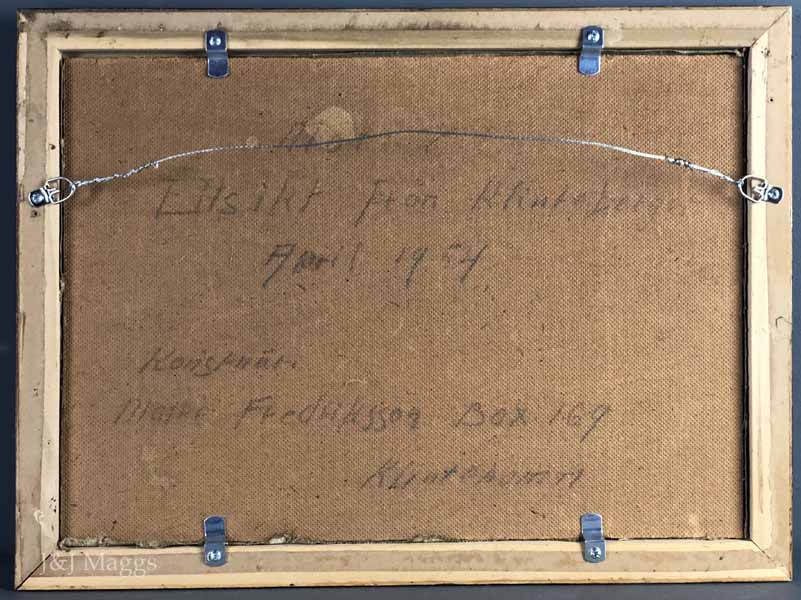 Utsikt Från Klinteberg.
April 1954
Konstnär.
Fredriksson Box 169
Klintehamn
J&J Maggs